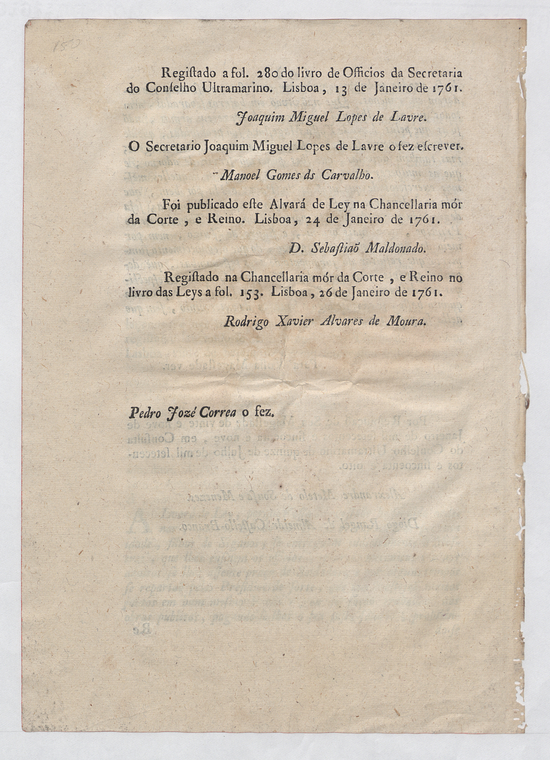 Regiſtado a fol. 280 do livro de Officios da Secretaria
do Conſelho Ultramarino. Lisboa, 13 de Janeiro de 1761.
Joaquim Miguel Lopes de Lavre.
O Secretario Joaquim Miguel Lopes de Lavre o fez eſcrever.
Manoel Gomes ds Carvalho.
Foi publicado eſte Alvará de Ley na Chancellaria mór
da Corte, e Reino. Lisboa, 24 de Janeiro de 1761.
D. Sebaſtiaõ Maldonado.
Regiſtado na Chancellaria mór da Corte, e Reino no
livro das Leys a fol. 153. Lisboa, 26 de Janeiro de 1761.
Rodrigo Xavier Alvares de Moura.
Pedro Jozé Correa o fez.